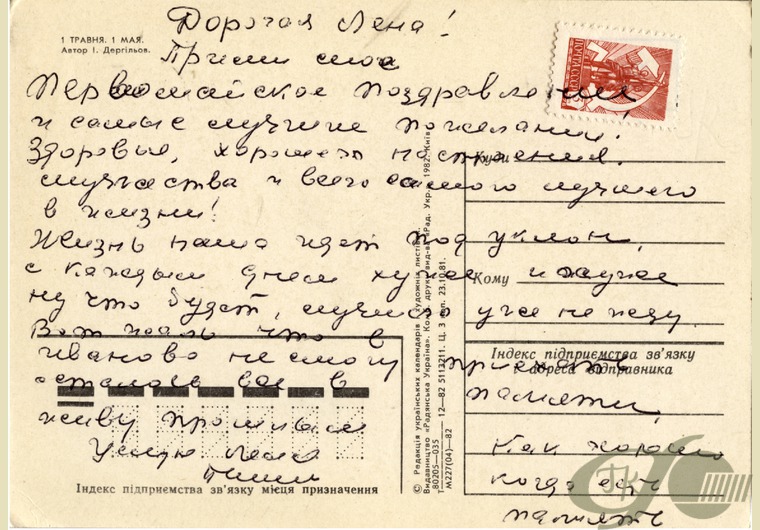 1 ТРАВНЯ. 1 МАЯ.
Автор І. Дергільов.
ПОЧТА СССР
Дорогая Лена!
Прими мое
Первомайское поздравление,
и самые лучшие пожелания!
Здоровья, хорошего настроения,
мужества и всего самого лучшего
в жизни!
Жизнь наша идет под уклон,
с каждым днем хуже и хуже
ну что будет, лучшего уже не жду.
Вот жаль что в
Иваново не смогу приехать
осталось все в памяти,
живу прошлым
Целую Лена
Пиши
Как хорошо
когда есть
память
Куди
Кому
Індекс підприємства зв'язку
й адреса відправника
Індекс підприємства зв'язку місця призначення
© Редакція українських календарів і художніх листівок.
Видавництво «Радянська Україна». Ком. друк. вид-ва «Рад. Укр.», 1982. Київ
80205—035 12—82 5113211. Ц. 3 коп. 23.10.81.
М227(04)—82